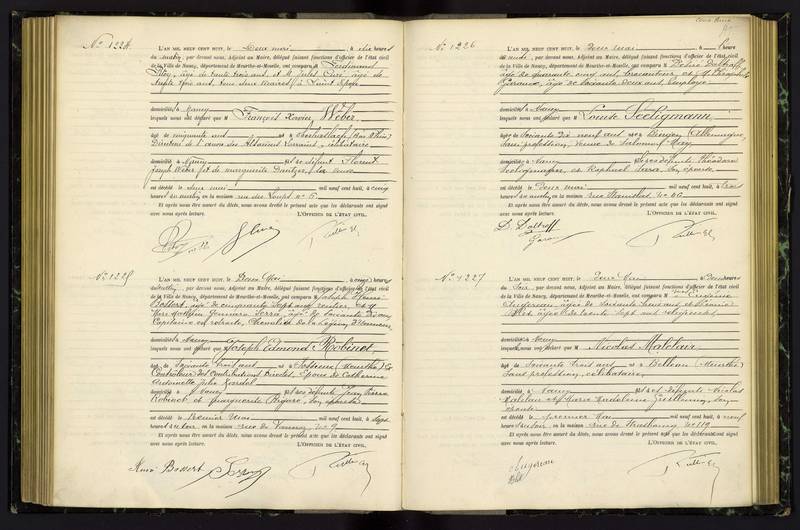 N° 1224
L'AN MIL NEUF CENT HUIT, le Deux mai à dix heures
du matin, par devant nous, Adjoint au Maire, délégué faisant fonctions d'officier de l'état civil
de la Ville de Nancy, département de Meurthe-et-Moselle, ont comparu M Ferdinand
âgé de trente trois ans, et M Jules
domicilié à Nancy
lesquels nous ont déclaré que M François Xavier Weber
âgé de cinquante ans
Directeur de l'œuvre des Alsaciens Lorrains, célibataire
domicilié à Nancy fils de défunt Florent
Joseph Weber et de Marguerite sa veuve
est décédé le deux mai mil neuf cent huit, à cinq
heures du matin en la maison rue des Loups n° 6
Et après nous être assuré du décès, nous avons dressé le présent acte que les déclarants ont signé
avec nous après lecture. L'OFFICIER DE L'ÉTAT CIVIL,
N° 1225
L'AN MIL NEUF CENT HUIT, le Deux Mai à onze heures
du matin, par devant nous, Adjoint au Maire, délégué faisant fonctions d'officier de l'état civil
de la Ville de Nancy, département de Meurthe-et-Moselle, ont comparu M Joseph Henri
Bossert, âgé de cinquante sept ans, rentier, et M
âgé de soixante dix ans
Capitaine en retraite, Chevalier de la Légion d'Honneur
domiciliés à Nancy
lesquels nous ont déclaré que M Joseph Edmond Robinot
âgé de soixante trois ans né à (Meurthe) Ex
Contrôleur des Contributions Directes, Époux de Catherine
Antoinette Julie
domicilié à Nancy fils des défunts Jean Pierre
Robinot et Marguerite son épouse
est décédé le Premier Mai mil neuf cent huit, à sept
heures du soir, en la maison rue de n° 9
Et après nous être assuré du décès, nous avons dressé le présent acte que les déclarants ont signé
avec nous après lecture. L'OFFICIER DE L'ÉTAT CIVIL,
Henri Bossert
N° 1226
L'AN MIL NEUF CENT HUIT, le Deux mai à heures
par devant nous, Adjoint au Maire, délégué faisant fonctions d'officier de l'état civil
de la Ville de Nancy, département de Meurthe-et-Moselle, ont comparu M
âgé de quarante cinq ans, brocanteur, et M
âgé de soixante deux ans, employé
domiciliés à Nancy
lesquels nous ont déclaré que M Louise Seeligmann
âgée de soixante dix neuf ans née à Bingen (Allemagne)
sans profession, veuve de Salomon May
domiciliée à Nancy fille des défunts Théodore
Seeligmann et Raphaël Sara, son épouse
est décédée le Deux mai mil neuf cent huit, à trois
heures du matin en la maison rue Stanislas n° 40
Et après nous être assuré du décès, nous avons dressé le présent acte que les déclarants ont signé
avec nous après lecture. L'OFFICIER DE L'ÉTAT CIVIL,
N° 1227
L'AN MIL NEUF CENT HUIT, le Deux Mai à Deux heures
du soir, par devant nous, Adjoint au Maire, délégué faisant fonctions d'officier de l'état civil
de la Ville de Nancy, département de Meurthe-et-Moselle, ont comparu M Eugénie
âgée de soixante huit ans, et
âgée de trente sept ans, religieuses
domiciliées à Nancy
lesquelles nous ont déclaré que M Nicolas
âgé de soixante trois ans né à Belleau (Meurthe)
sans profession, célibataire
domicilié à Nancy fils des défunts Nicolas
et Marie Madeleine son
épouse
est décédé le premier Mai mil neuf cent huit, à neuf
heures du soir en la maison rue de Strasbourg n° 119
Et après nous être assuré du décès, nous avons dressé le présent acte que les déclarants ont signé
avec nous après lecture. L'OFFICIER DE L'ÉTAT CIVIL,